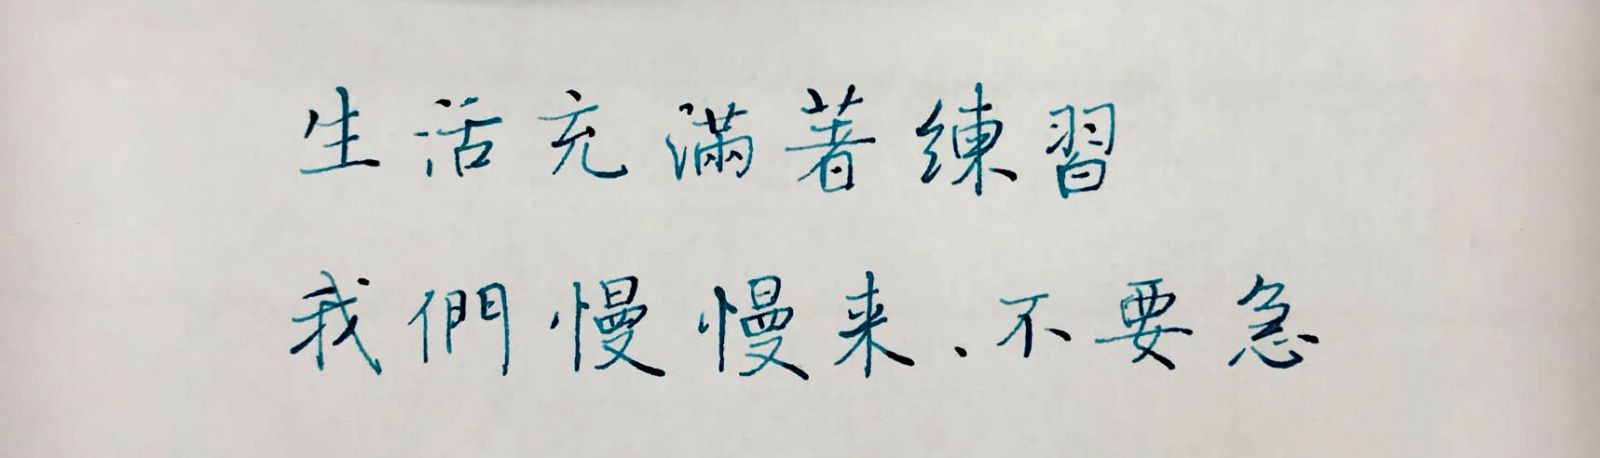 生活充滿著練習
我們慢慢来、不要急